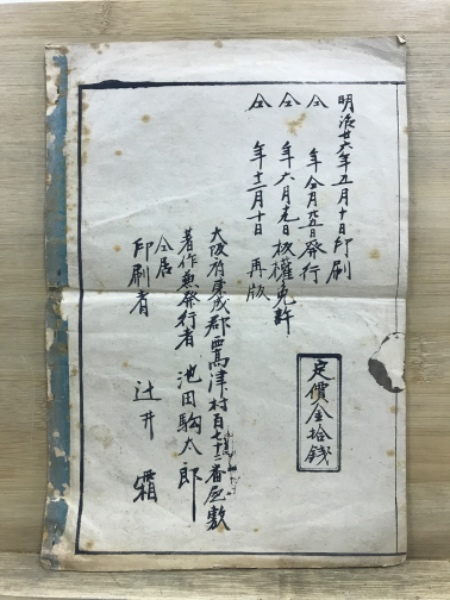 明治廿六年五月十日印刷
仝 年仝月廿五日発行
仝 年六月九日板權免許
仝 年十二月十日 再版
定價金拾錢
大阪府東成郡西高津村百七十三番屋敷
著作兼発行者 池田駒太郎
仝居
印刷者 辻井 霜